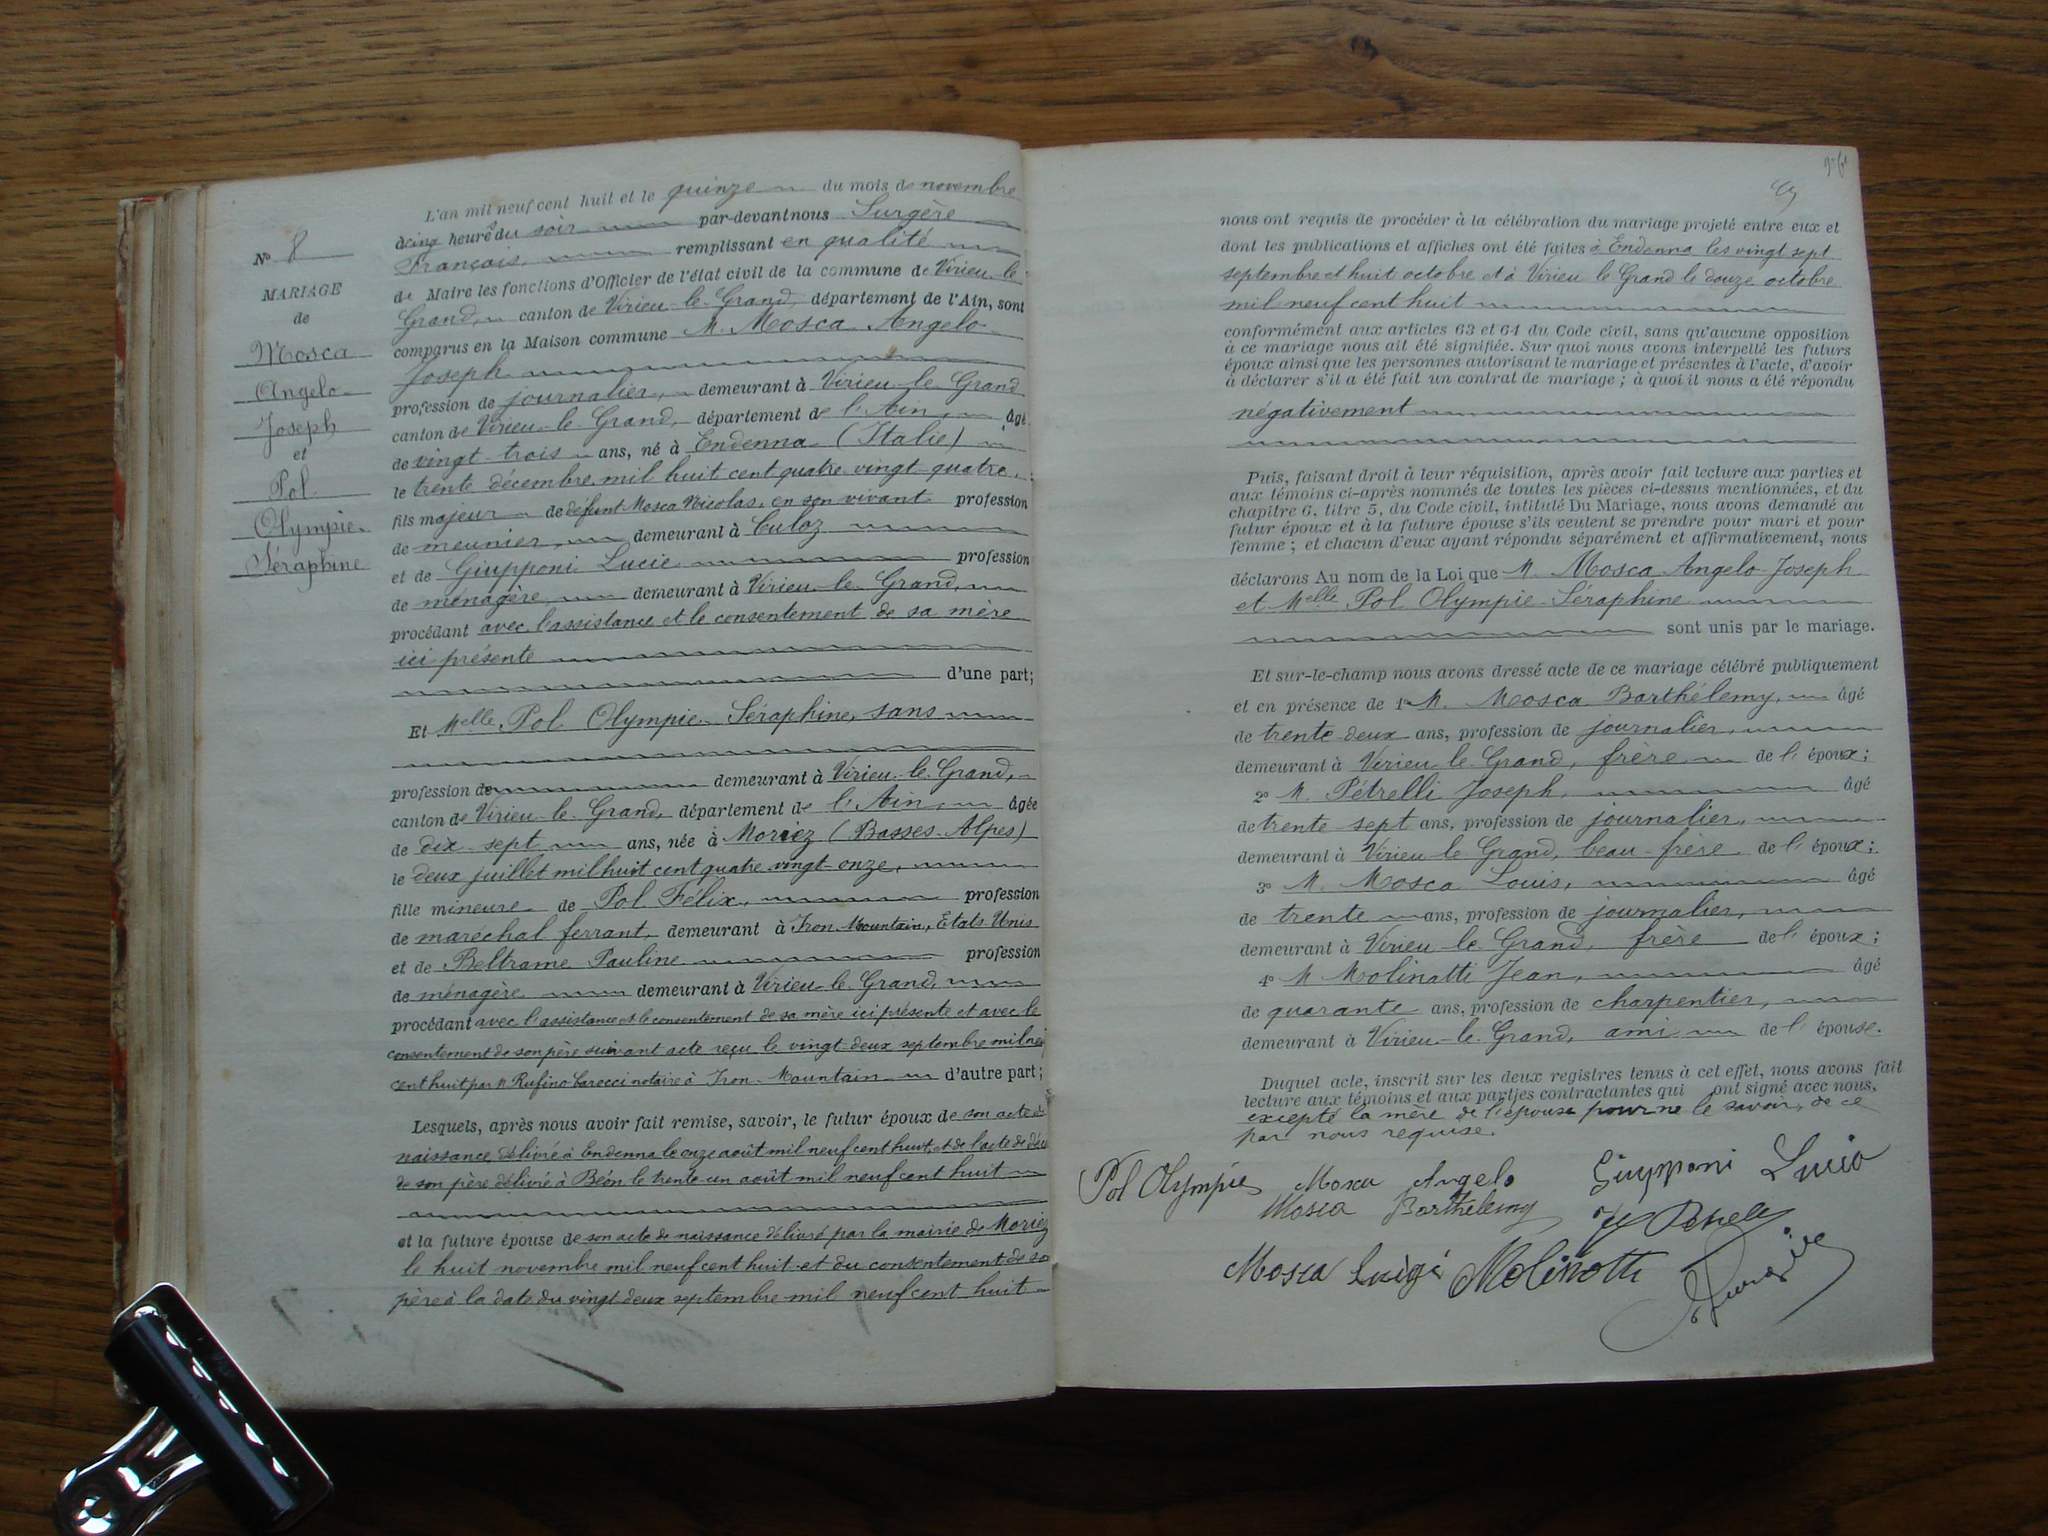 N° 8
MARIAGE
de
Mosca
Angelo
Joseph
et
Pol
Olympie
Séraphine
L'an mil neuf cent huit et le quinze du mois de novembre
à cinq heures du soir par-devant nous Surgère
François, remplissant en qualité
de Maire les fonctions d'Officier de l'état civil de la commune de Virieu-le-
Grand, canton de Virieu-le-Grand, département de l'Ain, sont
comparus en la Maison commune M. Mosca Angelo
Joseph
profession de journalier, demeurant à Virieu-le-Grand
canton de Virieu-le-Grand, département de l'Ain, âgé
de vingt-trois ans, né à Endenna (Italie)
le trente décembre mil huit cent quatre vingt quatre,
fils majeur de défunt Mosca Nicolas, en son vivant profession
de meunier, demeurant à Culoz
et de Giupponi Lucie profession
de ménagère demeurant à Virieu-le-Grand,
procédant avec l'assistance et le consentement de sa mère
ici présente
d'une part;
Et Melle Pol Olympie Séraphine, sans
profession de demeurant à Virieu-le-Grand,
canton de Virieu-le-Grand, département de l'Ain, âgée
de dix-sept ans, née à Moriez (Basses-Alpes)
le deux juillet mil huit cent quatre vingt-onze,
fille mineure de Pol Félix, profession
de maréchal ferrant, demeurant à Iron-Mountain, Etats-Unis
et de Beltrame Pauline profession
de ménagère demeurant à Virieu-le-Grand,
procédant avec l'assistance et le consentement de sa mère ici présente et avec le
consentement de son père suivant acte reçu le vingt-deux septembre mil neuf
cent huit par M Rufino notaire à Iron-Mountain d'autre part;
Lesquels, après nous avoir fait remise, savoir, le futur époux de son acte de
naissance, délivré à Endenna le onze août mil neuf cent huit, et de l'acte de décès
de son père délivré à Béon le trente-un août mil neuf cent huit
et la future épouse de son acte de naissance délivré par la mairie de Moriez
le huit novembre mil neuf cent huit et du consentement de son
père à la date du vingt deux septembre mil neuf cent huit
nous ont requis de procéder à la célébration du mariage projeté entre eux et
dont les publications et affiches ont été faites à Endenna les vingt sept
septembre et huit octobre et à Virieu le Grand le douze octobre
mil neuf cent huit
conformément aux articles 63 et 64 du Code civil, sans qu'aucune opposition
à ce mariage nous ait été signifiée. Sur quoi nous avons interpellé les futurs
époux ainsi que les personnes autorisant le mariage et présentes à l'acte, d'avoir
à déclarer s'il a été fait un contrat de mariage; à quoi il nous a été répondu
négativement
Puis, faisant droit à leur réquisition, après avoir fait lecture aux parties et
aux témoins ci-après nommés de toutes les pièces ci-dessus mentionnées, et du
chapitre 6, titre 5, du Code civil, intitulé Du Mariage, nous avons demandé au
futur époux et à la future épouse s'ils veulent se prendre pour mari et pour
femme; et chacun d'eux ayant répondu séparément et affirmativement, nous
déclarons Au nom de la Loi que M. Mosca Angelo Joseph
et Melle Pol Olympie Séraphine
sont unis par le mariage.
Et sur-le-champ nous avons dressé acte de ce mariage célébré publiquement
et en présence de 1° M. Mosca Barthélemy, âgé
de trente-deux ans, profession de journalier,
demeurant à Virieu le Grand, frère de l'époux;
2° M. Pétrelli Joseph, âgé
de trente sept ans, profession de journalier,
demeurant à Virieu le Grand, beau-frère de l'époux;
3° M. Mosca Louis, âgé
de trente ans, profession de journalier,
demeurant à Virieu-le-Grand, frère de l'époux;
4° M Molinatti Jean, âgé
de quarante ans, profession de charpentier,
demeurant à Virieu-le-Grand, ami de l'épouse.
Duquel acte, inscrit sur les deux registres tenus à cet effet, nous avons fait
lecture aux témoins et aux parties contractantes qui ont signé avec nous,
excepté la mère de l'épouse pour ne le savoir, de ce
par nous requise.
Pol Olympie Mosca Angelo Giupponi Lucia
Mosca Barthelemy
Mosca Luigi Molinotti